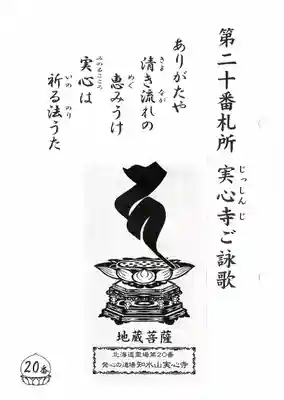 第二十番札所 実心寺ご詠歌
じっしんじ
ありがたや
清き流れの
きよ なが
恵みうけ
めぐ
実心は
みのるこころ
祈る法うた
いの のり
地蔵菩薩
北海道霊場第20番
発心の道場 知水山実心寺
20番